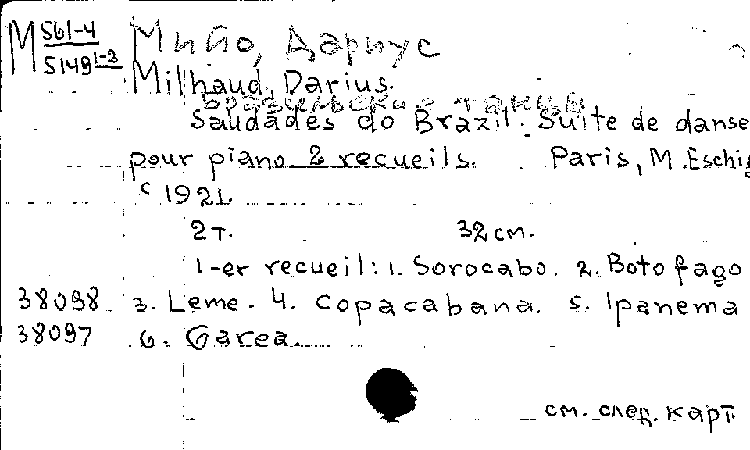 М 561-4
5149 1-2
Мийо, Дариус
Milhaud, Darius.
Бразильские танцы
Saudades do Brazil. Suite de danse
pour piano 2 recueils. Paris, M. Eschig
c 1921
2 т. 32 см.
1-er recueil: 1. Sorocabo. 2. Botofago
38098 3. Leme. 4. Copacabana. 5. Ipanema
38097 6. Garea.
см. след. карт